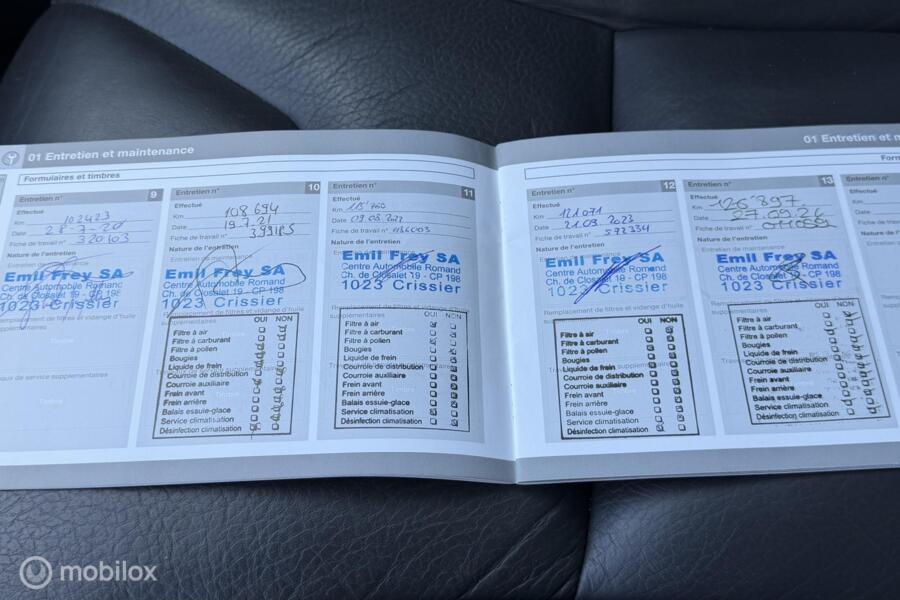 01 Entretien et maintenance
Formulaires et timbres
Entretien n° 9
Effectué
Km 102423
Date 28-7-20
Fiche de travail n° 320103
Nature de l'entretien
Entretien de maintenance
Emil Frey SA
Centre Automobile Romand
Ch. de Closalet 19 - CP 198
1023 Crissier
Entretien n° 10
Effectué
Km 108 694
Date 19.7.21
Fiche de travail n°
Nature de l'entretien
Emil Frey SA
Centre Automobile Romand
Ch. de Closalet 19 - CP 198
1023 Crissier
OUI NON
Filtre à air
Filtre à carburant
Filtre à pollen
Bougies
Liquide de frein
Courroie de distribution
Courroie auxiliaire
Frein avant
Frein arrière
Balais essuie-glace
Service climatisation
Désinfection climatisation
Entretien n° 11
Effectué
Km 115 760
Date 09.08.2022
Fiche de travail n°
Nature de l'entretien
Emil Frey SA
Centre Automobile Romand
Ch. de Closalet 19 - CP 198
1023 Crissier
OUI NON
Filtre à air
Filtre à carburant
Filtre à pollen
Bougies
Liquide de frein
Courroie de distribution
Courroie auxiliaire
Frein avant
Frein arrière
Balais essuie-glace
Service climatisation
Désinfection climatisation
01 Entretien et m
Form
Entretien n° 12
Effectué
Km 121 071
Date 21.09.2023
Fiche de travail n° 592334
Nature de l'entretien
Emil Frey SA
Centre Automobile Romand
Ch. de Closalet 19 - CP 198
1023 Crissier
Remplacement de filtres et vidange d'huile
OUI NON
Filtre à air
Filtre à carburant
Filtre à pollen
Bougies
Liquide de frein
Courroie de distribution
Courroie auxiliaire
Frein avant
Frein arrière
Balais essuie-glace
Service climatisation
Désinfection climatisation
Entretien n° 13
Effectué
Km 126 897.
Date 27.09.24
Fiche de travail n°
Nature de l'entretien
Emil Frey SA
Centre Automobile Romand
Ch. de Closalet 19 - CP 198
1023 Crissier
Remplacement de filtres et vidange d'huile
OUI NON
Filtre à air
Filtre à carburant
Filtre à pollen
Bougies
Liquide de frein
Courroie de distribution
Courroie auxiliaire
Frein avant
Frein arrière
Balais essuie-glace
Service climatisation
Désinfection climatisation
Entretien n°
Effectué
Km
Date
Fiche de
mobilox